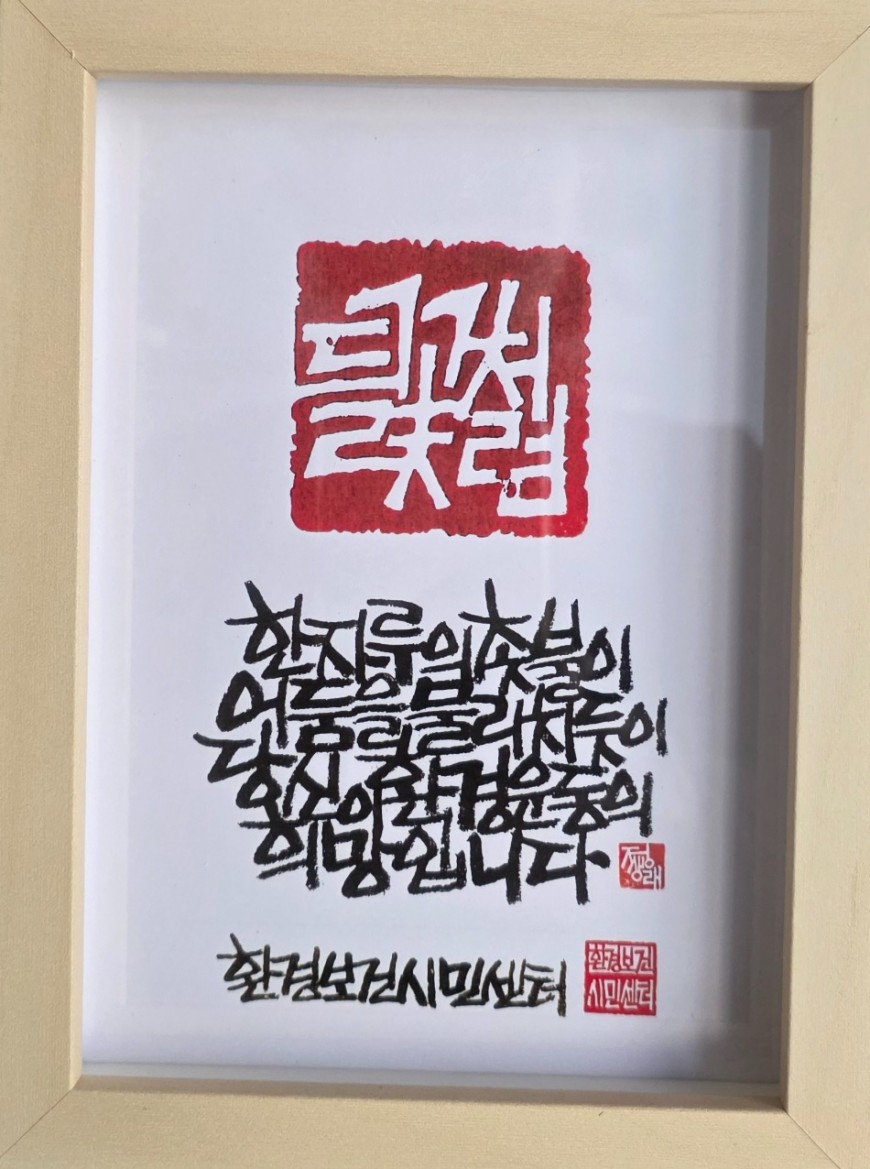 들꽃처럼
한자루의촛불이
어둠을물리치듯이
당신이환경운동의
희망입니다
환경보건시민센터
환경보건
시민센터